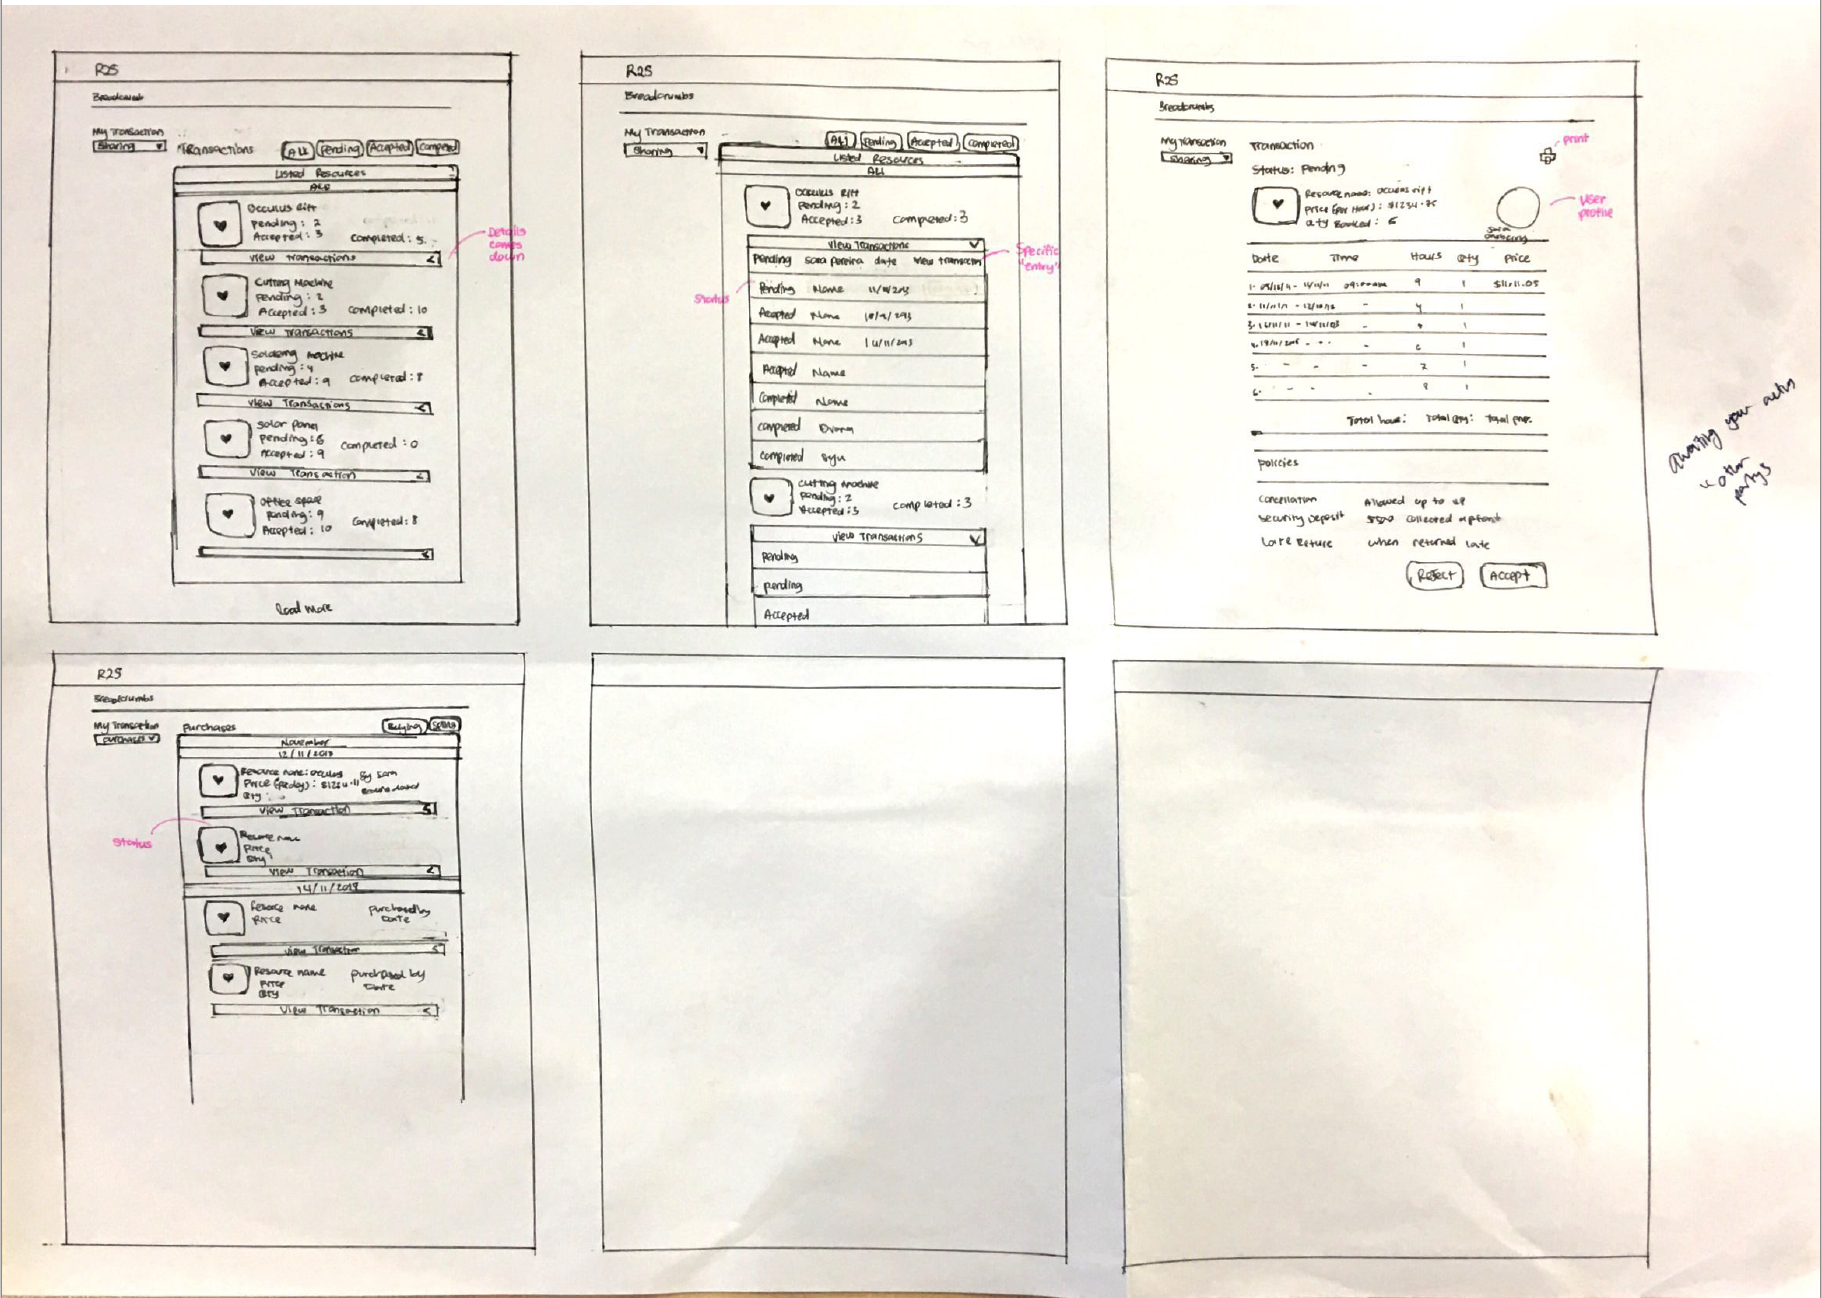 R2S
Breadcrumb
My Transaction
Sharing
Transactions
All Pending Accepted Completed
Listed Resources
ALL
Occulus Rift
Pending: 2
Accepted: 3 Completed: 5
View Transactions
Details comes down
Cutting Machine
Pending: 2
Accepted: 3 Completed: 10
View Transactions
Soldering Machine
Pending: 4
Accepted: 9 Completed: 8
View Transactions
Solar Panel
Pending: 6
Accepted: 9 Completed: 0
View Transaction
Office space
Pending: 9
Accepted: 10 Completed: 8
Load More
R2S
Breadcrumbs
My Transaction
Sharing
All Pending Accepted Completed
Listed Resources
ALL
Occulus Rift
Pending: 2
Accepted: 3 Completed: 3
View Transactions
Pending Sara Pereira date View transactn
Specific "entry"
Status
Pending Name
Accepted Name
Accepted Name
Accepted Name
Completed Name
Completed
Completed
Cutting Machine
Pending: 2
Accepted: 3 Completed: 3
View Transactions
Pending
Pending
Accepted
R2S
Breadcrumbs
My Transaction
Sharing
Transaction
Print
Status: Pending
Resource name: Occulus rift
Price (per Hour): $1234.
Qty Booked: 6
User profile
Date Time Hours Qty Price
1. 9 1 $11.11.05
2. 4 1
3. 1
4. 1
5. - - - 2 1
6. - - 8 1
Total hour: Total Qty: Total
Policies
Cancellation Allowed up to
Security Deposit collected upfront
Late Return when returned late
Reject Accept
Awaiting your
"other partys
R2S
Breadcrumbs
My Transaction
Purchases
Purchases
Buying
November
12/11/2013
Resource name: Occulus By Sara
Price (Per day): $1234.11
Qty:
View Transaction
Status
Resource name
Price
Qty
View Transaction
Resource name Purchased by
Price Date
View Transaction
Resource name Purchased by
Price Date
Qty
View Transaction